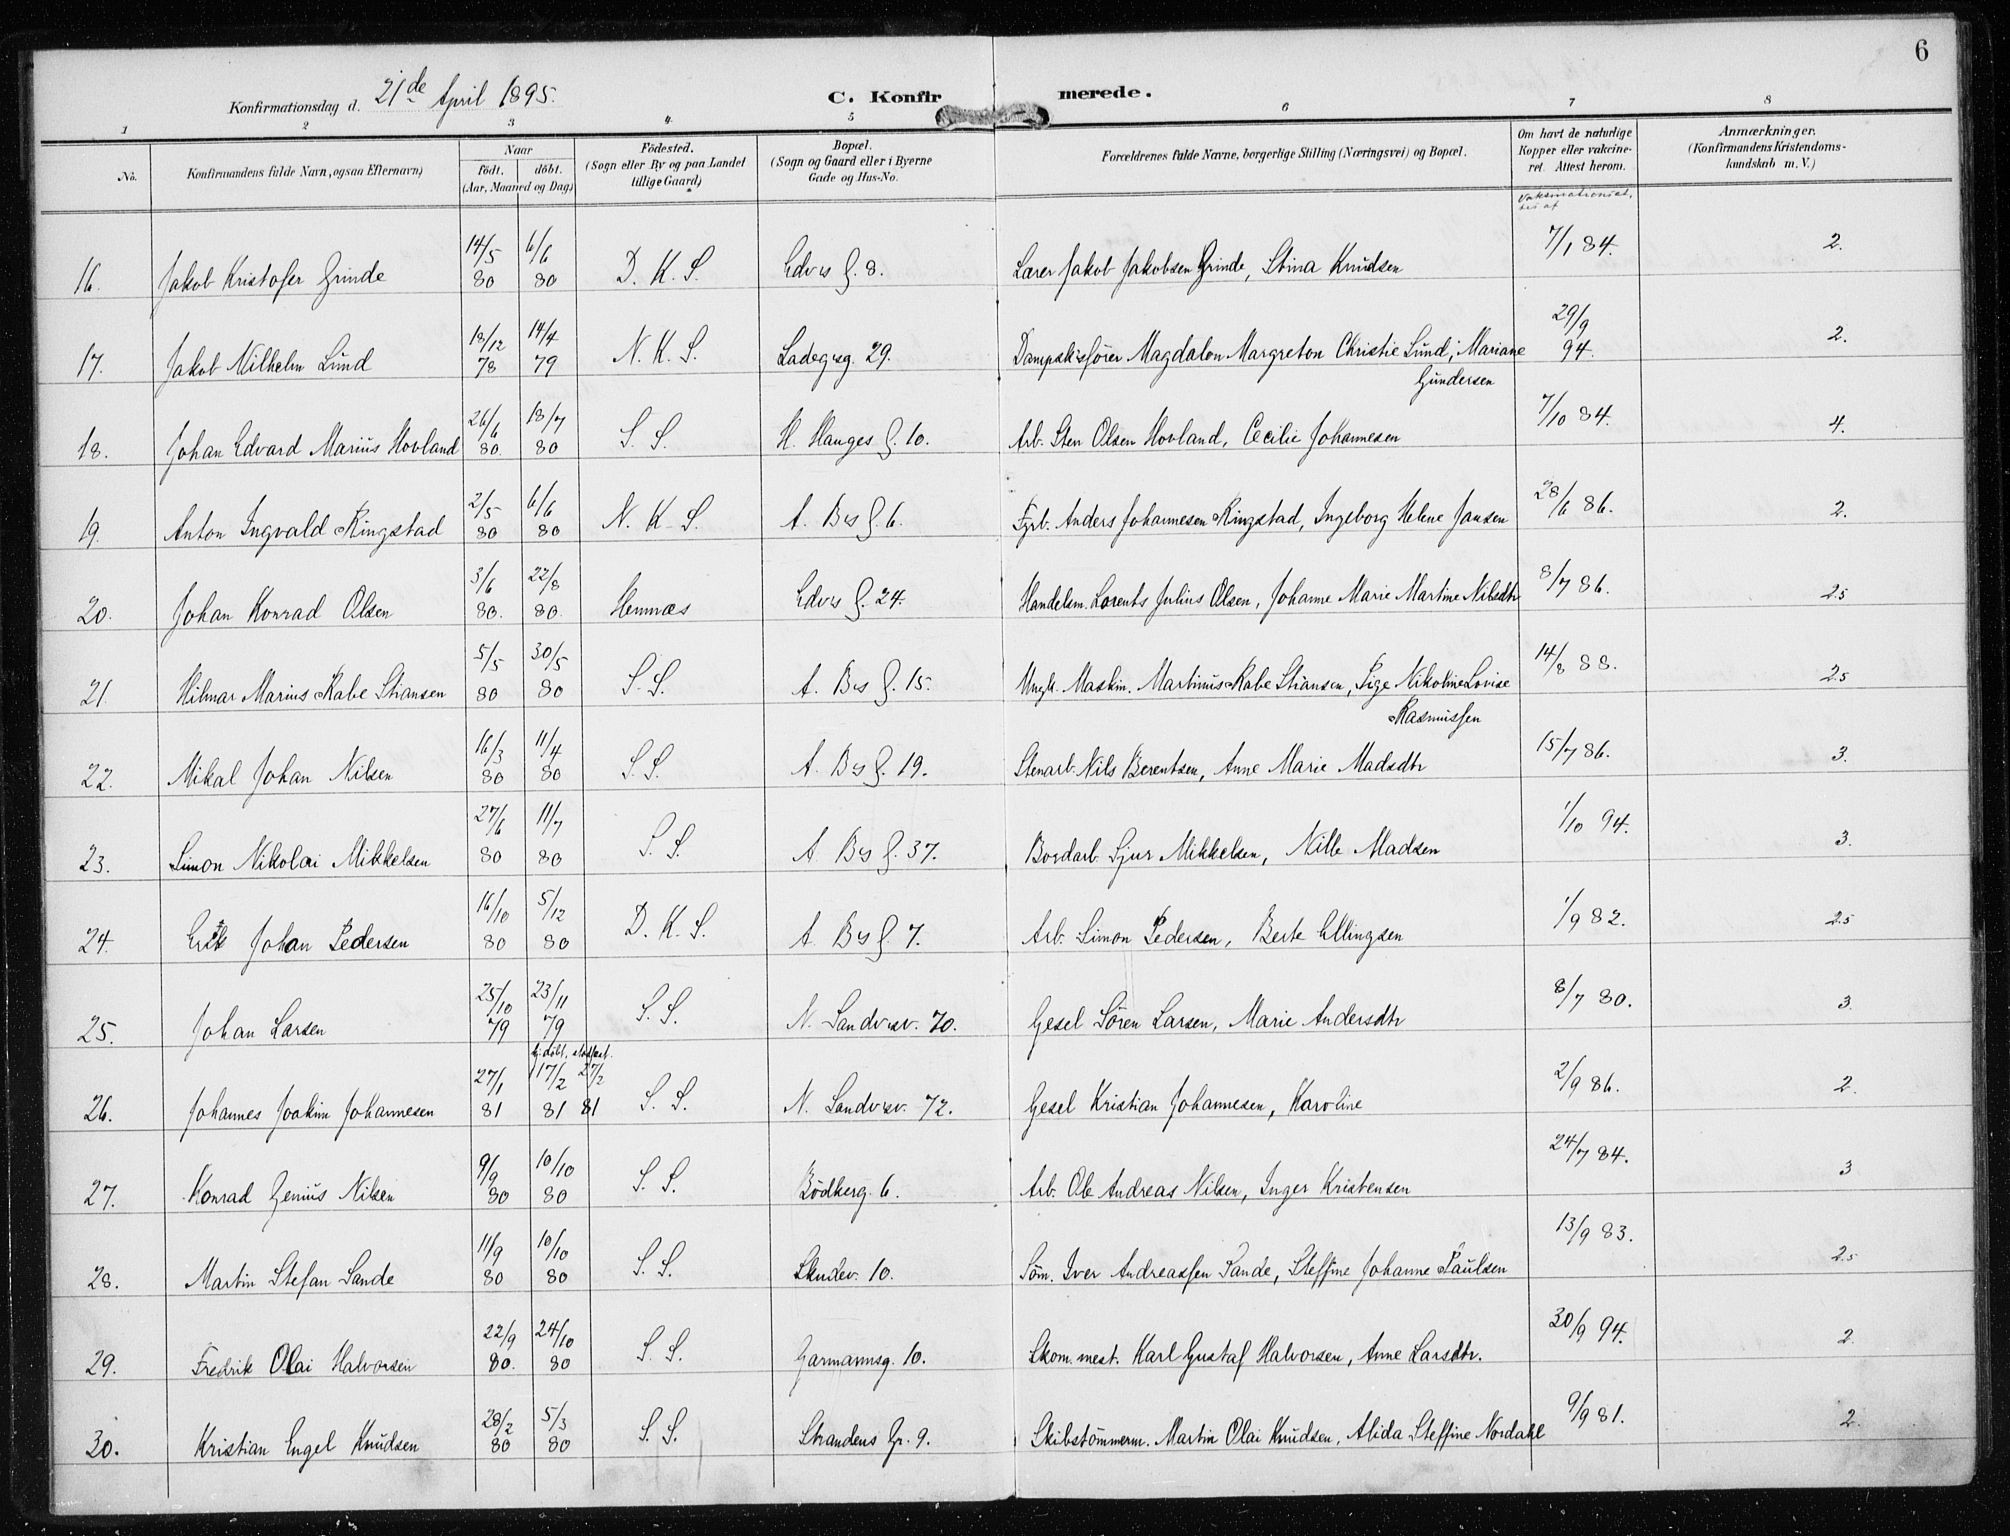 6
Konfirmationsdag d. 21de April 1895.
C. Konfirmerede.
1 2 3 4 5 6 7 8
No. Konfirmandens fulde Navn, ogsaa Efternavn) Naar født. døbt. (Aar, Maaned og Dag) Fødested. (Sogn eller By og paa Landet tillige Gaard) Bopæl. (Sogn og Gaard eller i Byerne Gade og Hus-No. Forældrenes fulde Navne, borgerlige Stilling (Næringsvei) og Bopæl. Om havt de naturlige Kopper eller vakcineret. Attest herom. Anmærkninger. (Konfirmandens Kristendomskundskab m. V.)
16. Jakob Kristofer Grinde 14/5 80 6/6 80 D. K. S. Edvs G. 8. Lærer Jakob Jakobsen Grinde, Stina Knudsen 7/1 84. 2.
17. Jakob Wilhelm Lund 18/12 78 14/4 79 N. K. S. Ladegsg. 29. Dampskibsfører Magdalon Margreton Christie Lund, Mariane Gundersen 29/9 94. 2.
18. Johan Edvard Marius Hovland 26/6 80 18/7 80 S. S. H. Hauges G. 10. Arb. Sten Olsen Hovland, Cecilie Johannesen 7/10 84. 4.
19. Anton Ingvald Ringstad 2/5 80 6/6 80 N. K. S. A. Bs G. 6. Anders Johannesen Ringstad, Ingeborg Helene Jansen 28/6 86. 2.
20. Johan Konrad Olsen 3/6 80. 22/8 80. Hemnæs Edvs G. 24. Handelsm. Lorents Julius Olsen, Johanne Marie Martine Nilsdtr 8/7 86. 2.5
21. Hilmar Marius Rabe Stiansen 5/5 80 30/5 80 S. S. A. Bs G. 15. Maskin. Martinus Rabe Stiansen, Sige Nikoline Lovise Rasmussen 14/8 88. 2.5
22. Mikal Johan Nilsen 16/3 80 11/4 80 S. S. A. Bs G. 19. Stenarb. Nils Berentsen, Anne Marie Madsdtr 15/7 86. 3.
23. Simon Nikolai Mikkelsen 27/6 80 11/7 80 S. S. A. Bs G. 37. Bordarb. Sjur Mikkelsen, Nille Madsen 1/10 94. 3.
24. Erik Johan Pedersen 16/10 80 5/12 80 D. K. S. A. Bs G. 7. Arb. Simon Pedersen, Berte Ellingsen 1/9 82. 2.5
25. Johan Larsen 25/10 79 23/11 79 S. S. N. Sandvsv. 70. Gesel Søren Larsen, Marie Andersdtr 8/7 80. 3.
26. Johannes Joakim Johannesen 27/1 81 hj.døbt. stadfæst. 17/2 81 27/2 81 S. S. N. Sandvsv. 72. Gesel Kristian Johannesen, Karoline 2/9 86. 2.
27. Konrad Genius Nilsen 9/9 80 10/10 80 S. S. Bødkerg. 6. Arb. Ole Andreas Nilsen, Inger Kristensen 24/7 84. 3
28. Martin Stefan Sande 11/9 80 10/10 80 S. S. Skudev. 10. Søm. Iver Andreassen Sande, Steffine Johanne Paulsen 13/9 83. 2.5
29. Fredrik Olai Halvorsen 22/9 80. 24/10 80 S. S. Garmannsg. 10. Skom. mest. Karl Gustaf Halvorsen, Anne Larsdtr. 30/9 94. 2
30. Kristian Engel Knudsen 28/2 80 5/3 80 S. S. Strandens Gr. 9. Skibstømmerm. Martin Olai Knudsen, Alida Steffine Nordahl 9/9 81. 2.